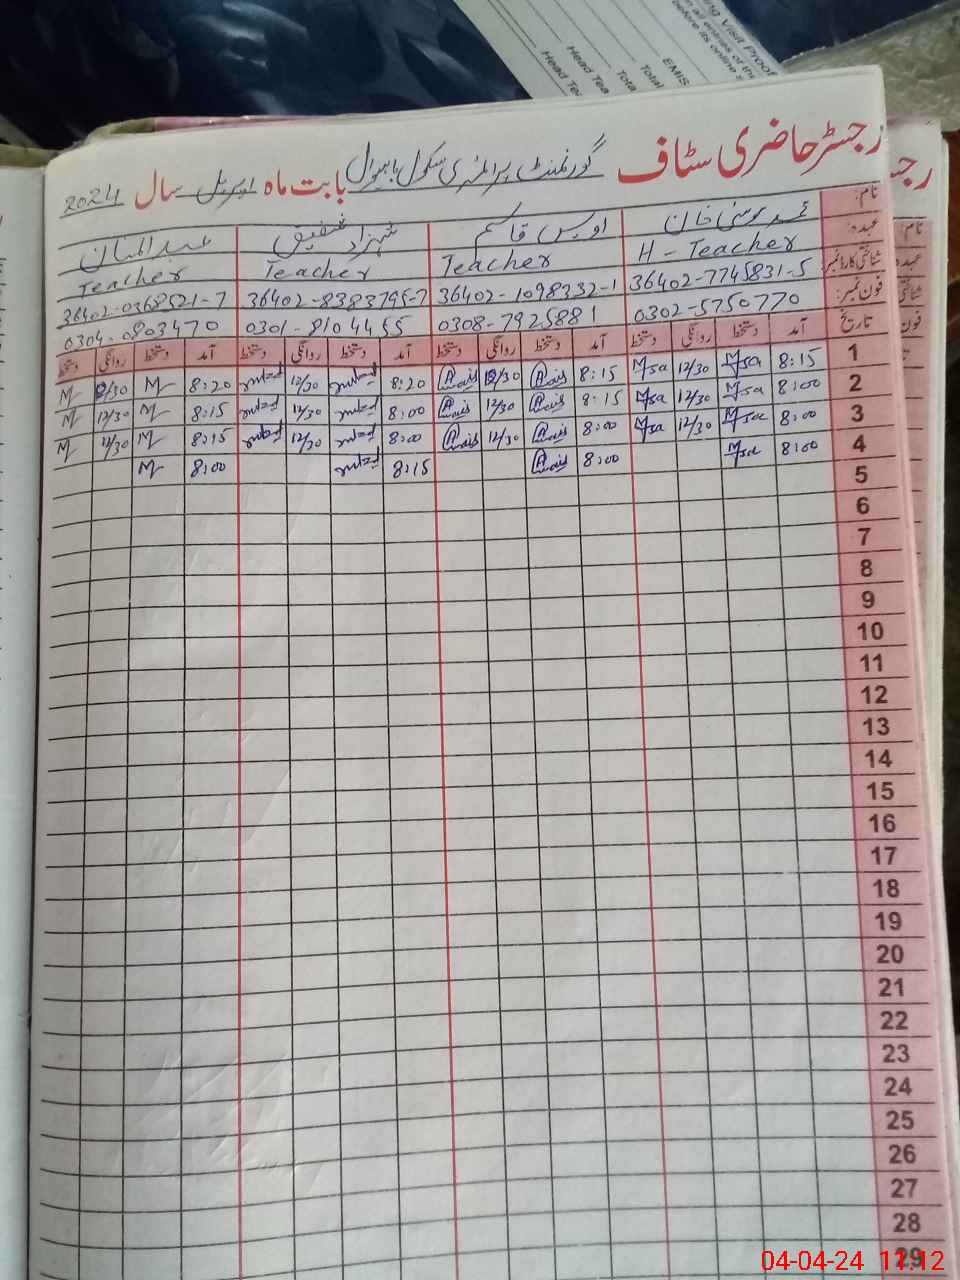 ing Visit Proof
n all entries of the
before its online
EMIS
Total
Tota
Head Tea
Head Tea
رجسٹر حاضری سٹاف گورنمنٹ پرائمری سکول باہیوال بابت ماہ اپریل سال 2024
رجس
نام: محمد موسیٰ خان اویس قاسم شہزاد شفیق عبدالمنان
عہدہ: H - Teacher Teacher Teacher Teacher
شناختی کارڈ نمبر: 36402-7745831-5 36402-1098332-1 36402-8383795-7 36402-0368521-7
فون نمبر: 0302-5750770 0308-7925881 0301-8104455 0304-0803470
تاریخ آمد دستخط روانگی دستخط آمد دستخط روانگی دستخط آمد دستخط روانگی دستخط آمد دستخط روانگی دستخط
1 8:15 Msa 12/30 Msa 8:15 12/30 8:20 12/30 8:20 M 12/30 M
2 8:00 Msa 12/30 Msa 8:15 12/30 8:00 12/30 8:15 M 12/30 M
3 8:00 Msa 12/30 Msa 8:00 12/30 8:00 12/30 8:15 M 12/30 M
4 8:00 Msa 8:00 8:15 8:00 M
5
6
7
8
9
10
11
12
13
14
15
16
17
18
19
20
21
22
23
24
25
26
27
28
29
نام:
عہدہ
شناختی
فون
04-04-24 11:12